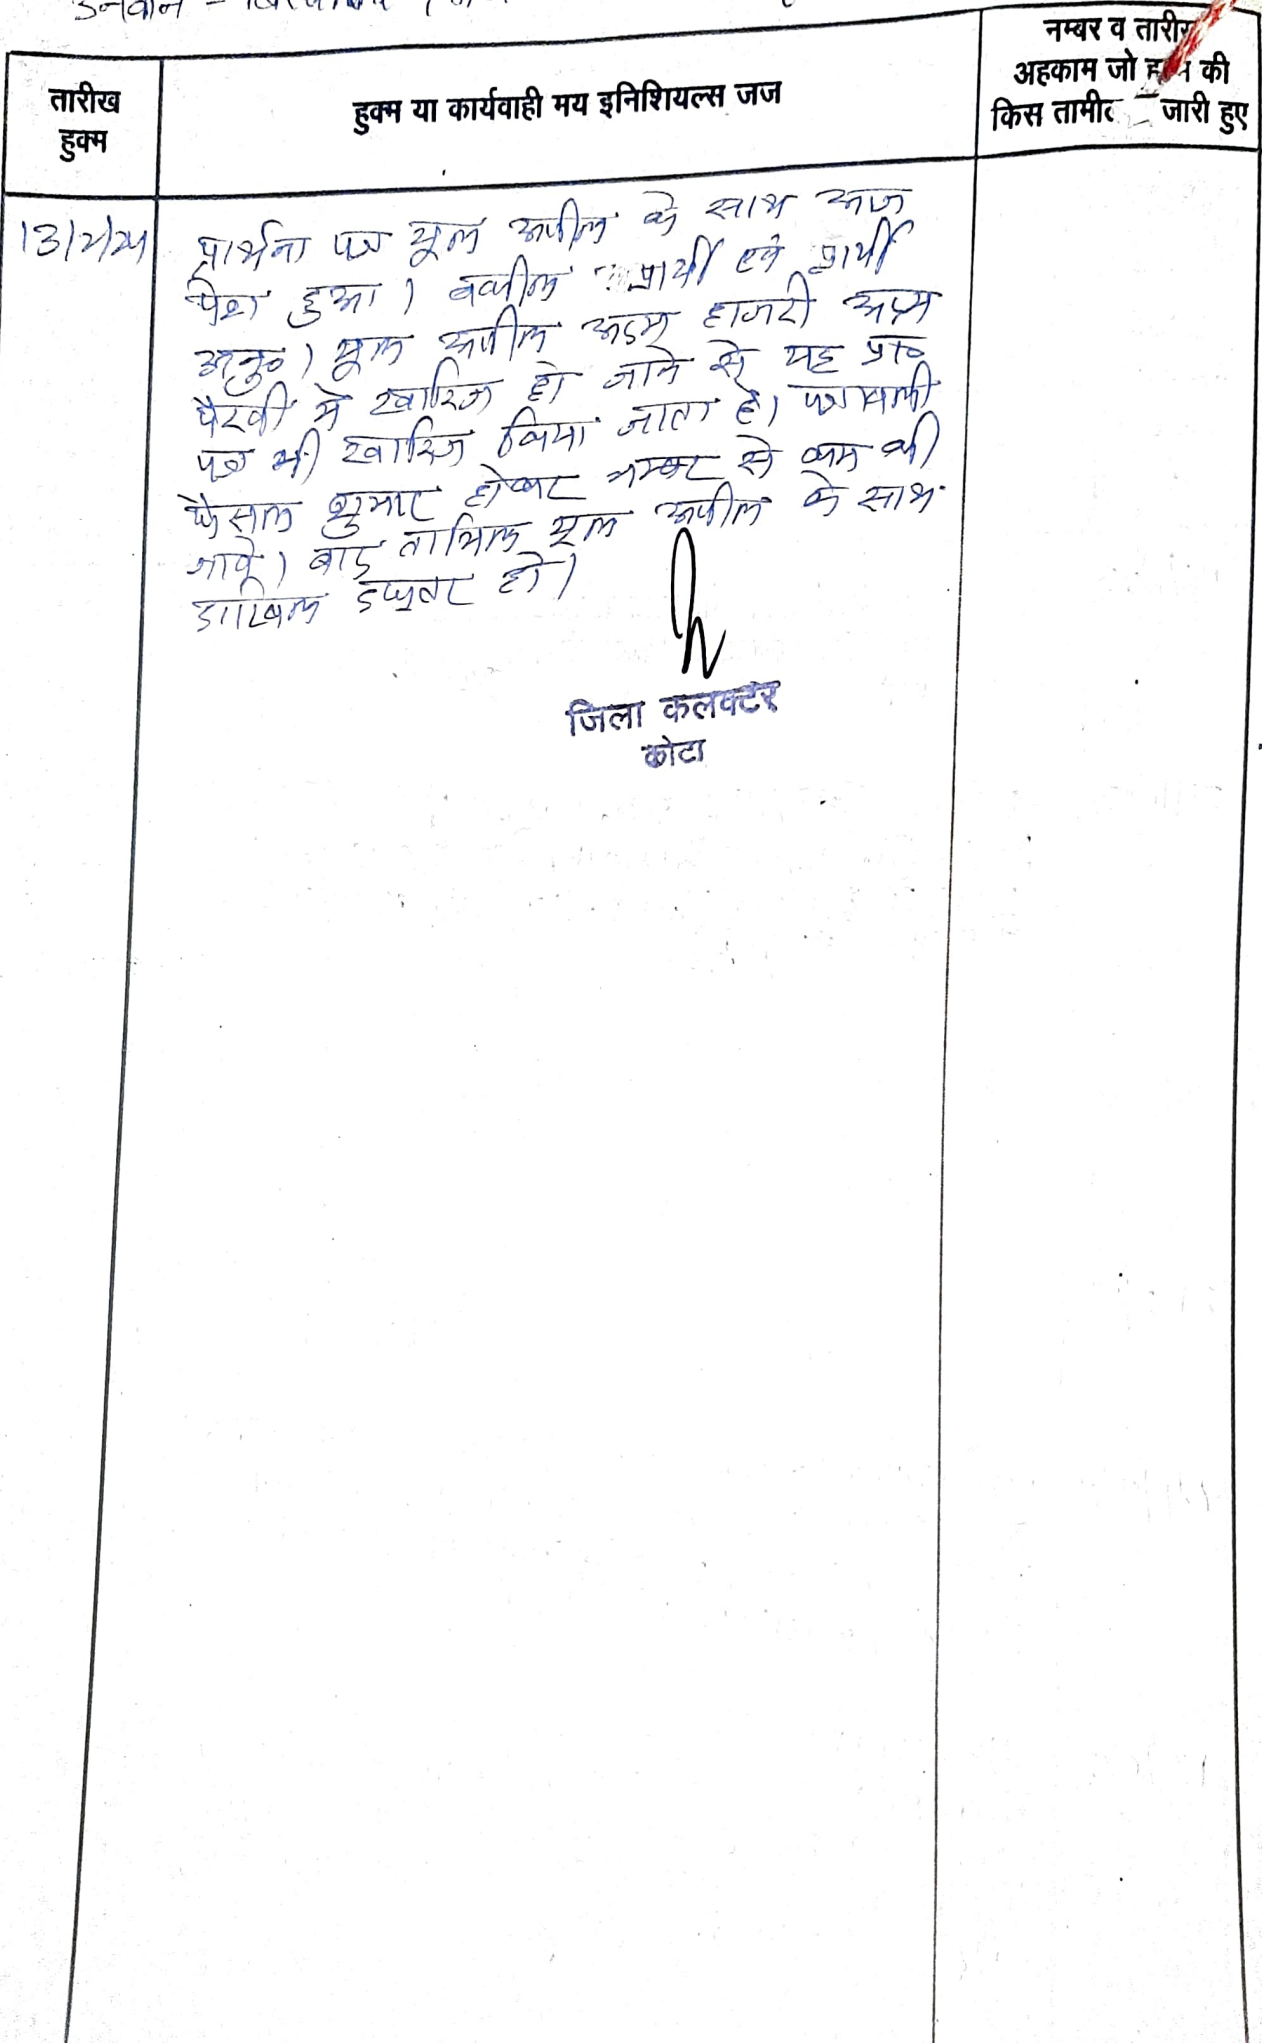 उनवान -
तारीख
हुक्म
हुक्म या कार्यवाही मय इनिशियल्स जज
नम्बर व तारीख
अहकाम जो की
किस जारी हुए
प्रार्थना पत्र मूल अपील के साथ आज
पेश हुआ। वकील प्रार्थी एवं प्रार्थी
अनु०। मूल अपील अदम हाजरी अदम
पैरवी में खारिज हो जाने से यह प्रा०
पत्र भी खारिज किया जाता है। पत्रावली
फैसल शुमार होकर नम्बर से कम की
जावे। बाद तामिल मूल अपील के साथ
दाखिल दफ्तर हो।
जिला कलक्टर
कोटा